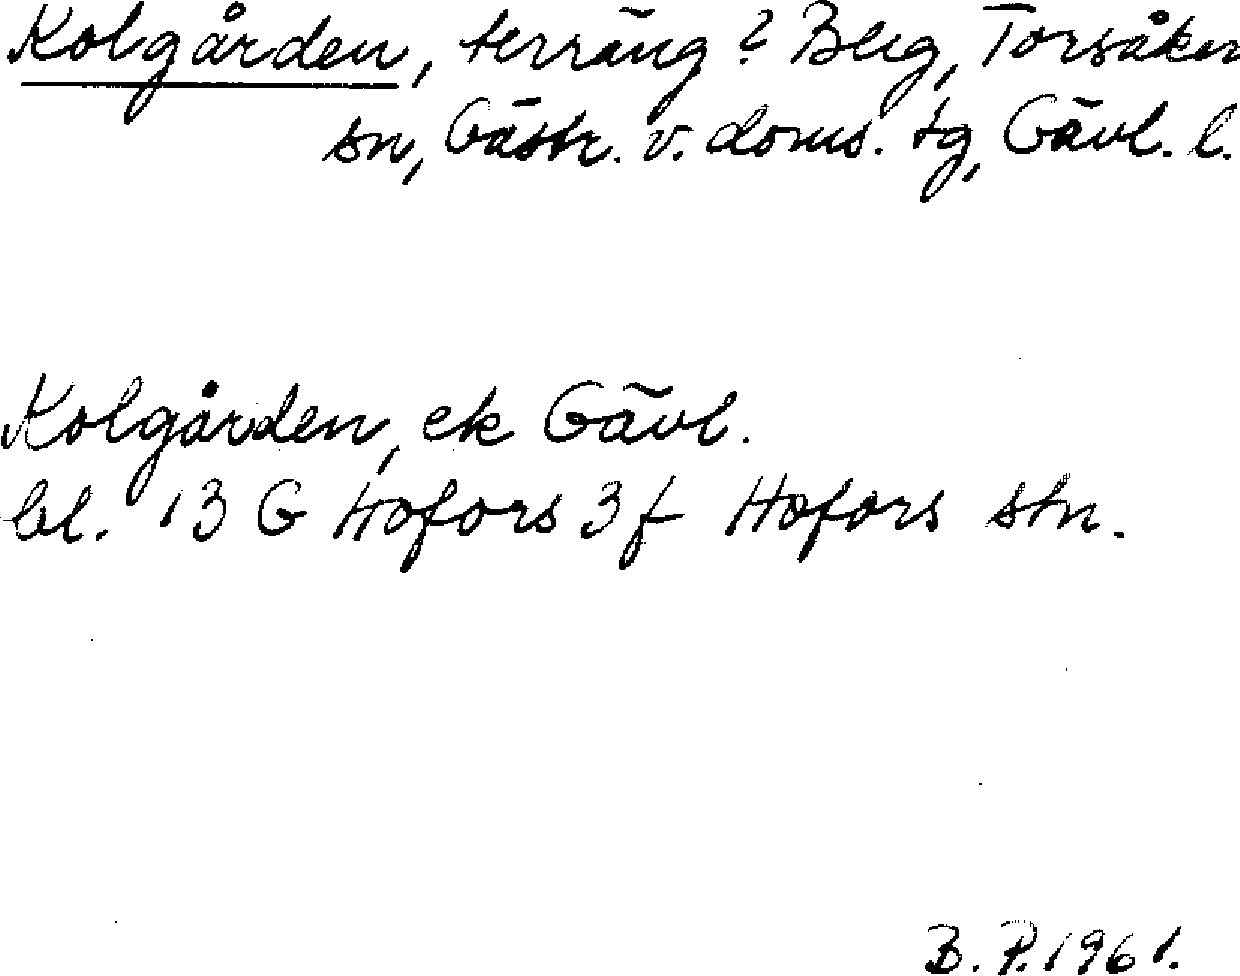 Kolgården, terräng? Berg, Torsåker
sn, Gästr. v. doms. tg, Gävl. l.
Kolgården, ek Gävl.
bl. 13 G Hofors 3 f Hofors stn.
B. P. 1961.